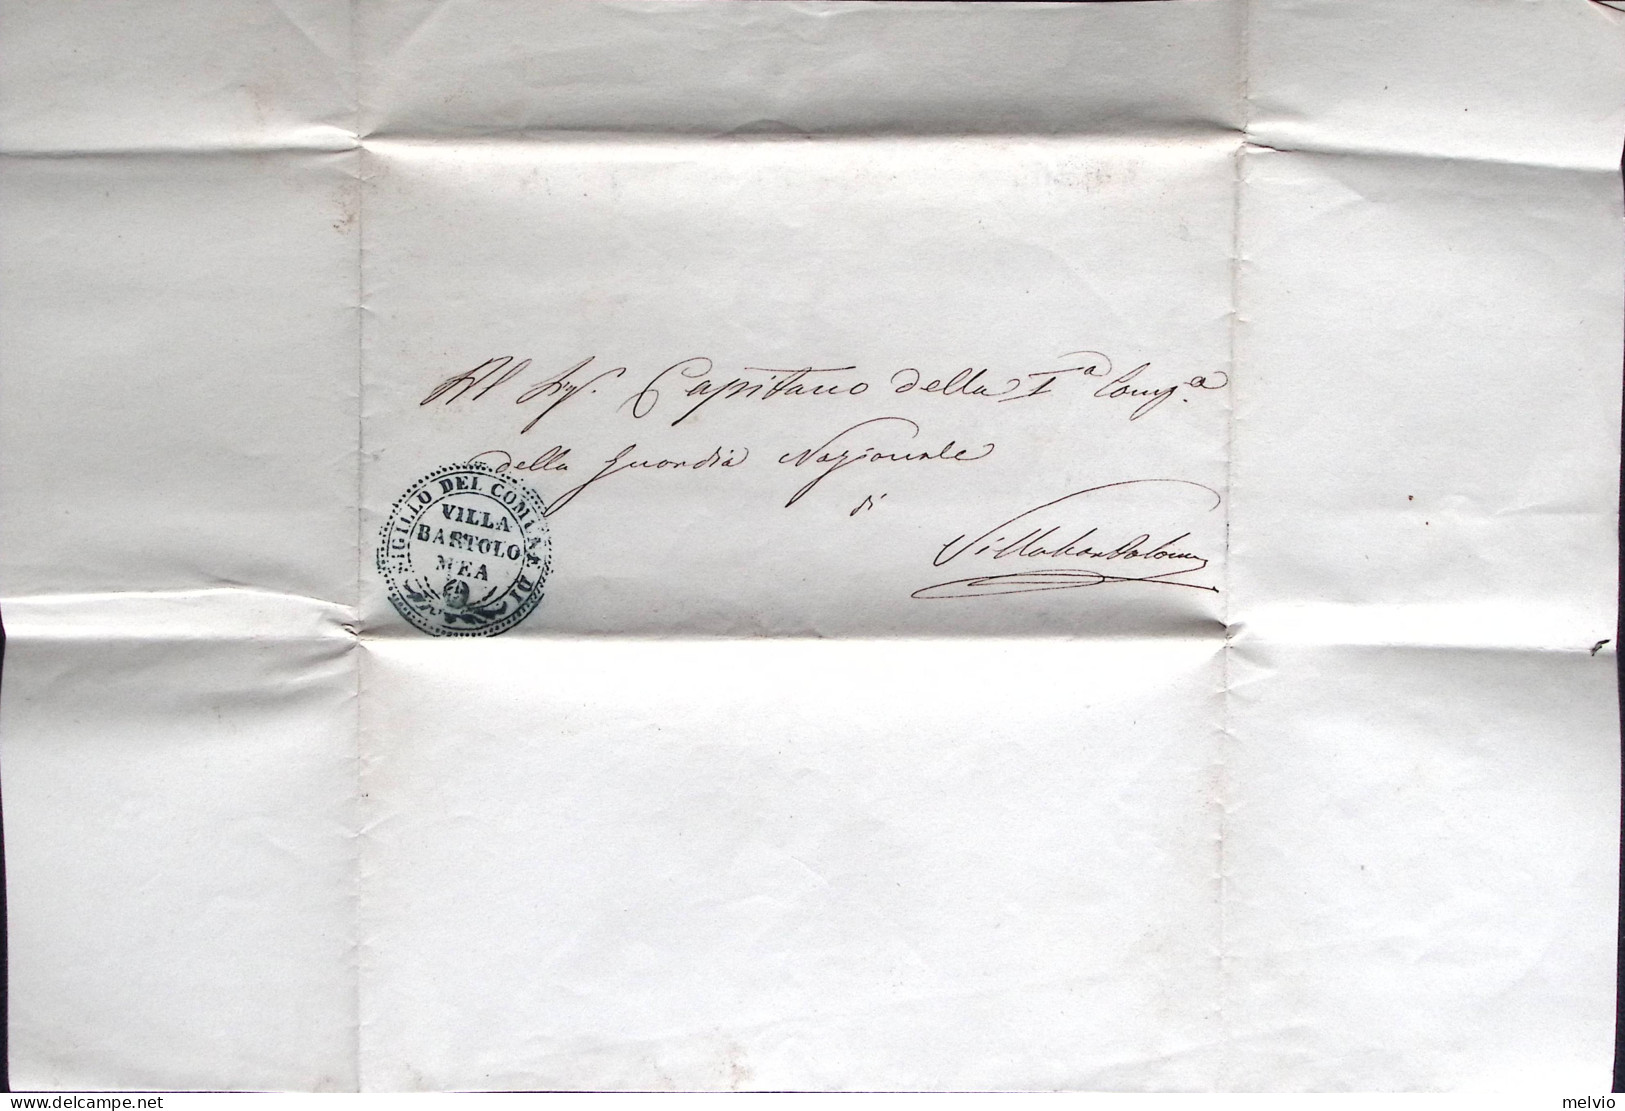 Al Sig.r Capitano della Iª Comp.ª
della Guardia Nazionale
di
Villabartolomea
SIGILLO DEL COMUNE DI
VILLA
BARTOLO
MEA
delcampe.net
melvio